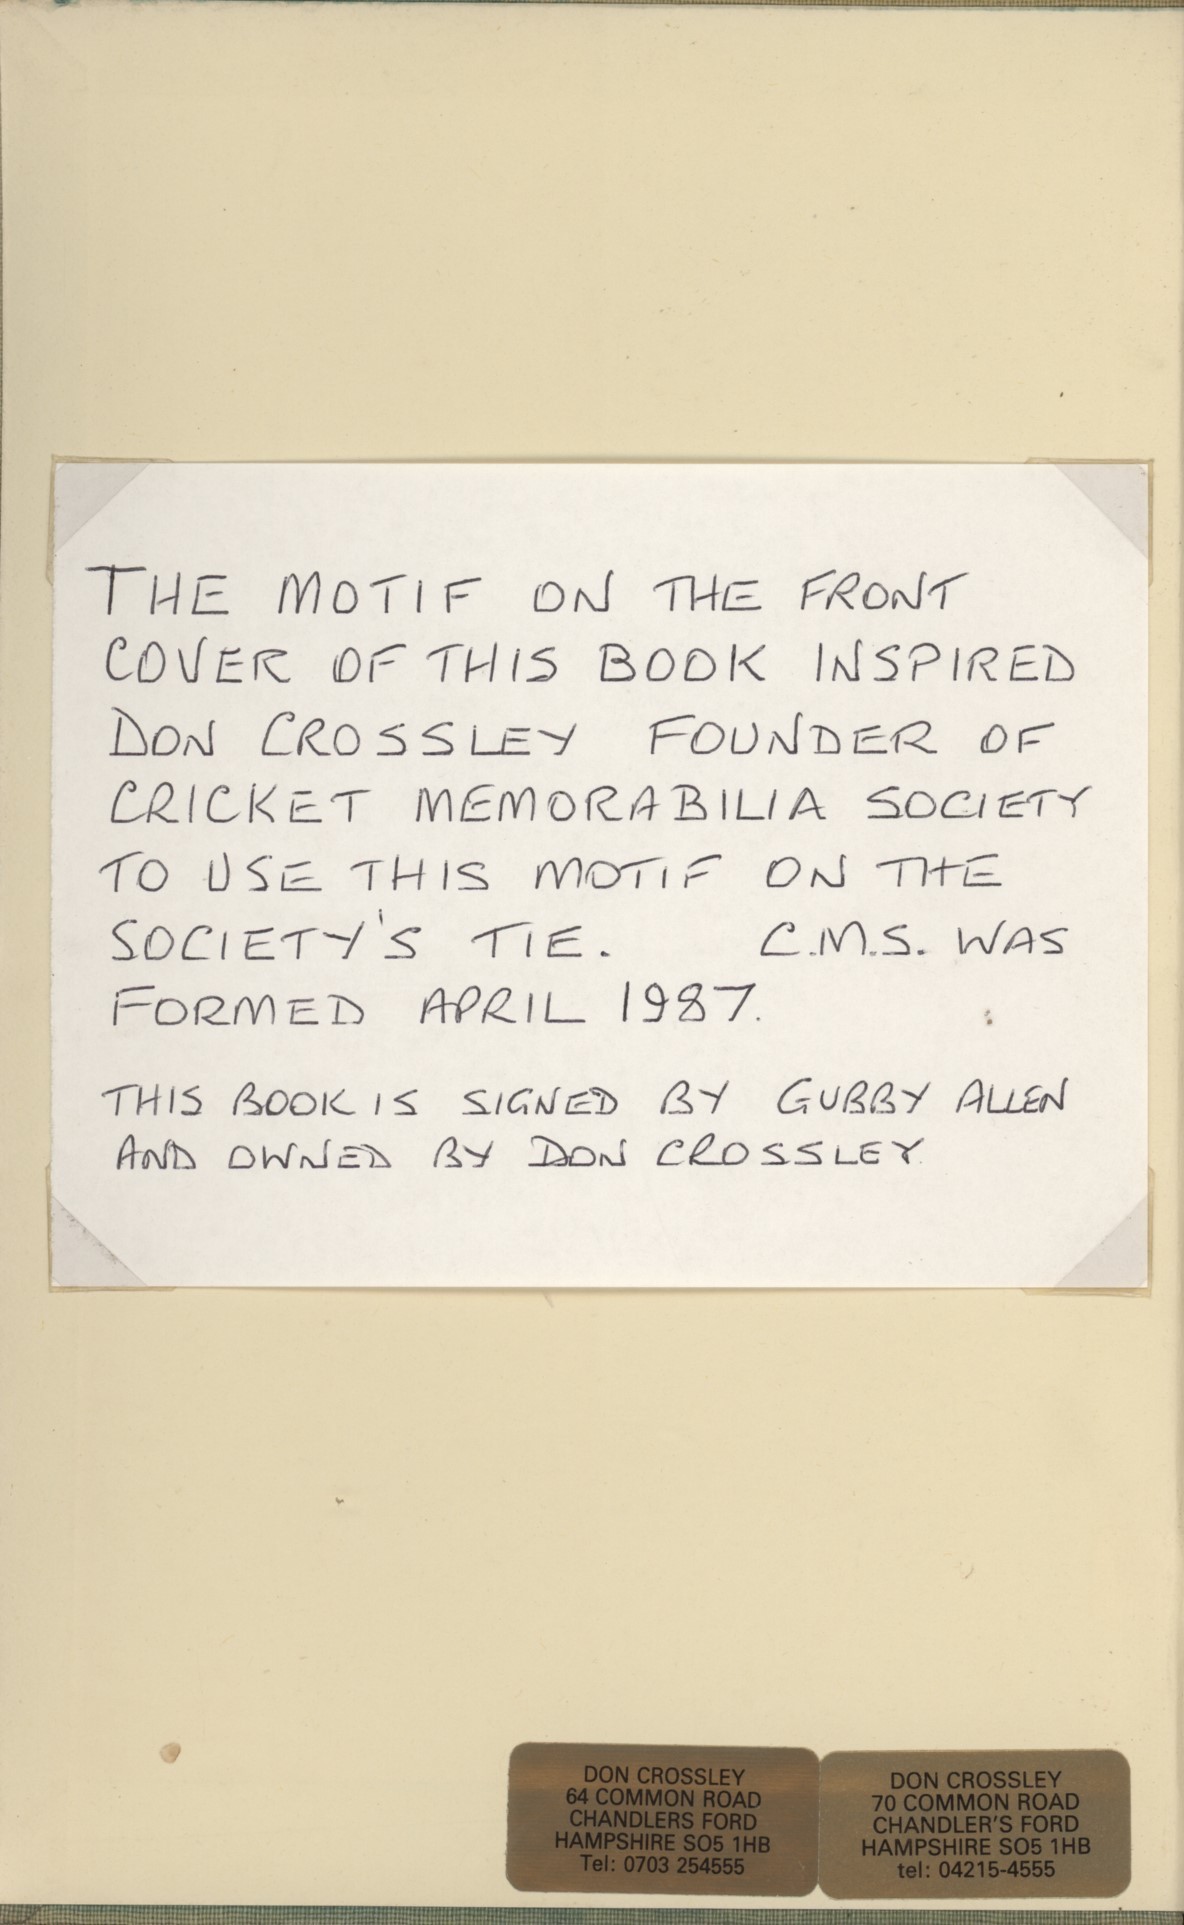 THE MOTIF ON THE FRONT
COVER OF THIS BOOK INSPIRED
DON CROSSLEY FOUNDER OF
CRICKET MEMORABILIA SOCIETY
TO USE THIS MOTIF ON THE
SOCIETY'S TIE. C.M.S. WAS
FORMED APRIL 1987.
THIS BOOK IS SIGNED BY GUBBY ALLEN
AND OWNED BY DON CROSSLEY
DON CROSSLEY
64 COMMON ROAD
CHANDLERS FORD
HAMPSHIRE SO5 1HB
Tel: 0703 254555
DON CROSSLEY
70 COMMON ROAD
CHANDLER'S FORD
HAMPSHIRE SO5 1HB
tel: 04215-4555